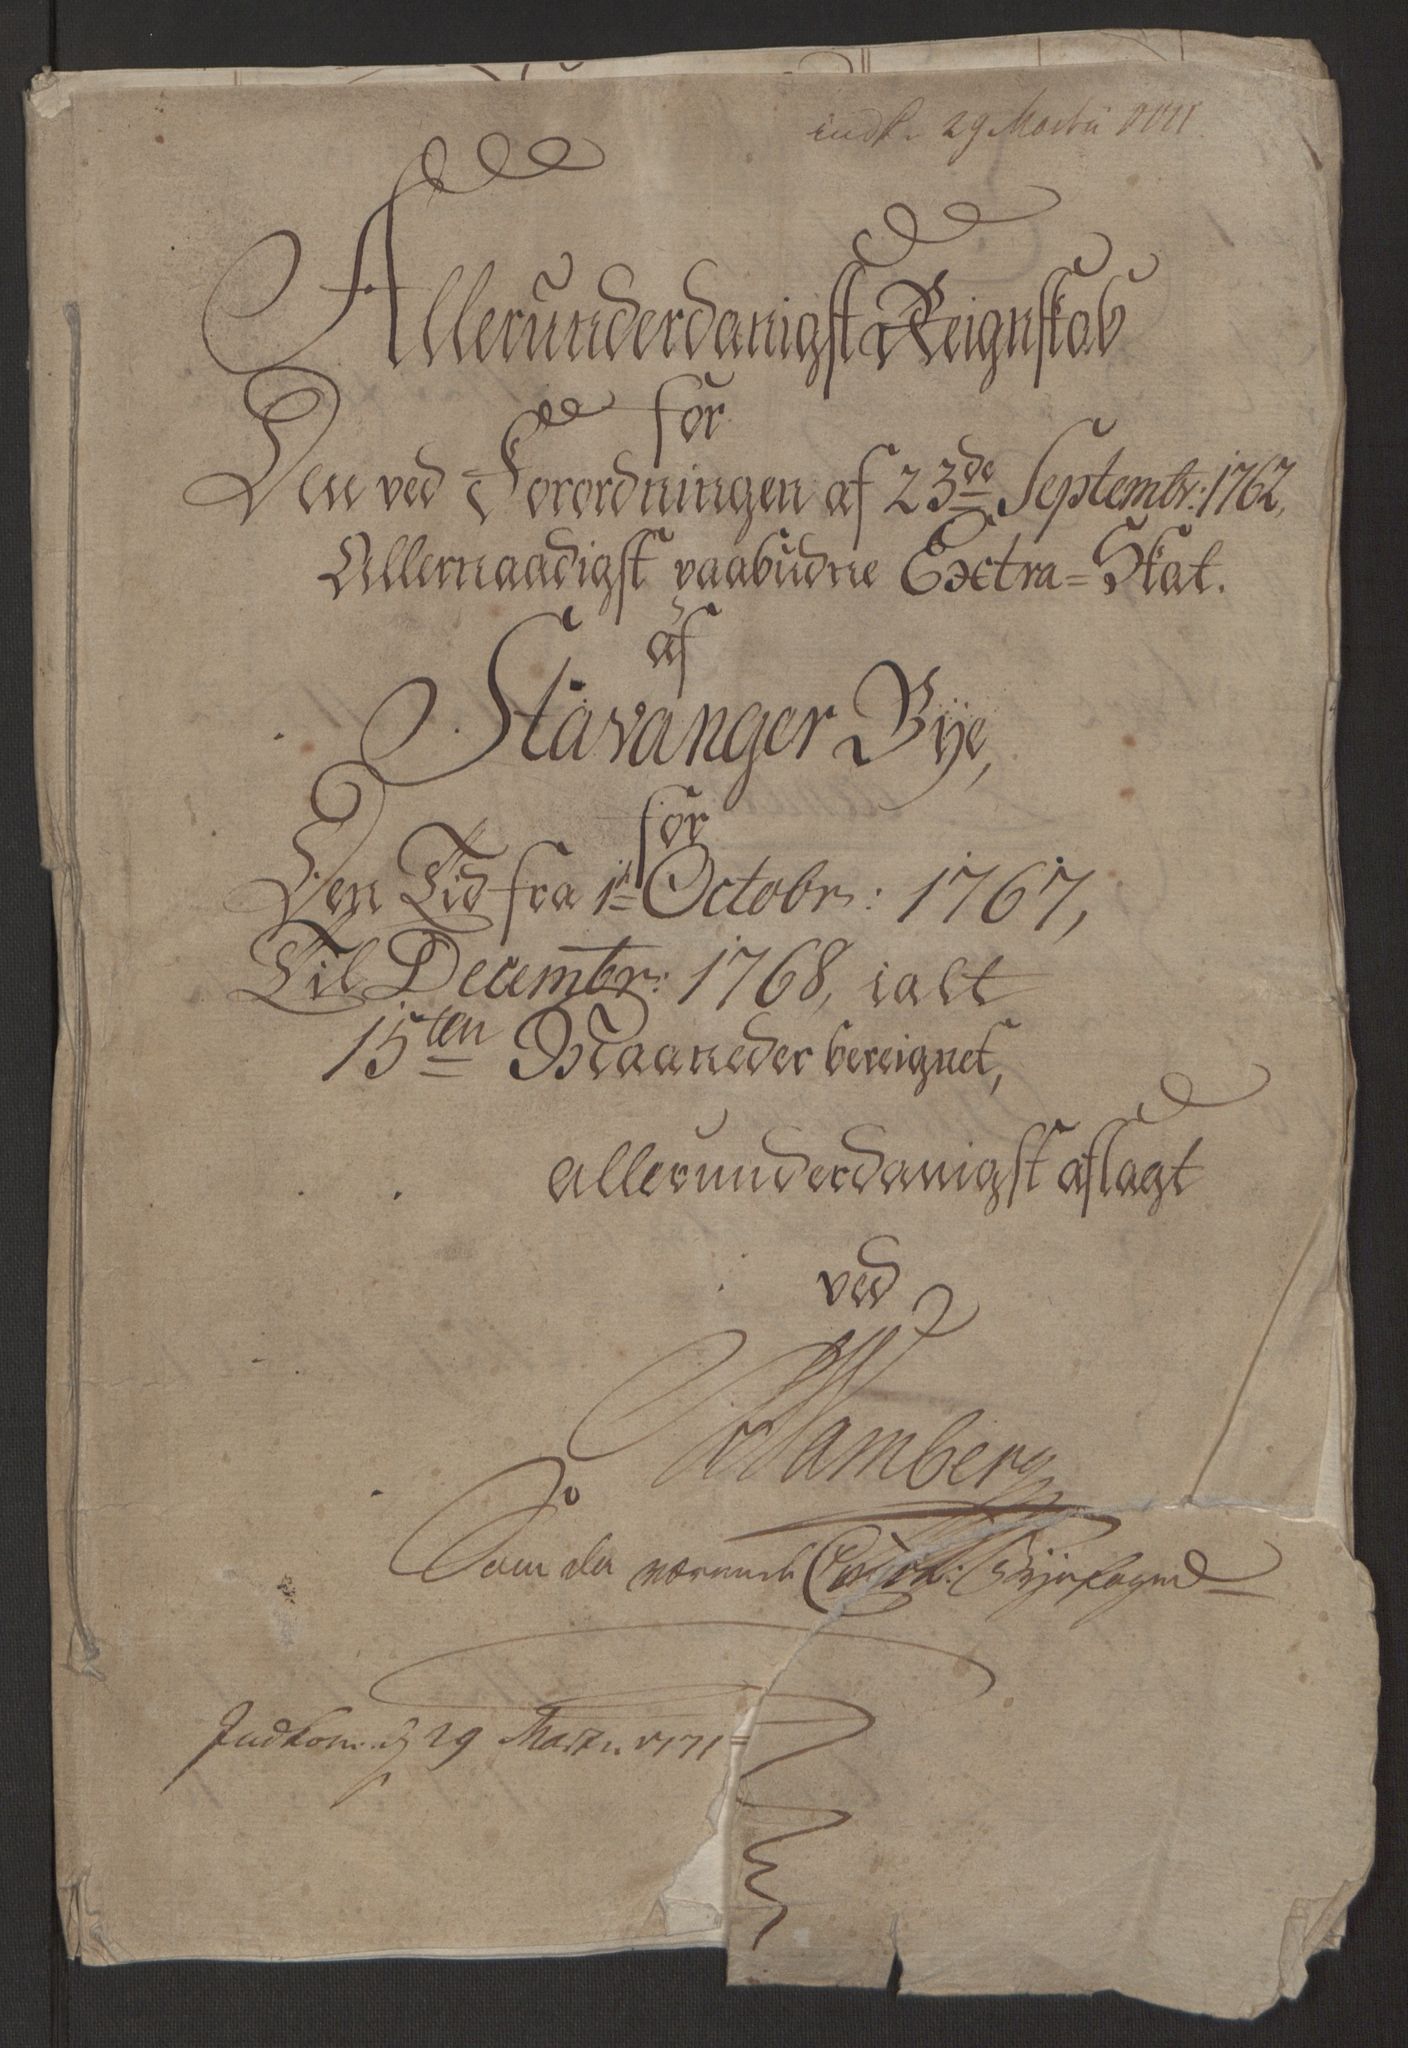 indk. 29 Martii 1771.
Allerunderdanigst Reignskab
for
Den ved Forordningen af 23de Septembr: 1762,
Allernaadigst paabudne Extra=Skat.
af
Stavanger Bÿe,
for
Den Tid fra 1te Octobr: 1767,
Til Decembr: 1768, ialt
15ten Maaneder bereignet,
allerunderdanigst aflagt
ved
Wamberg
Som da værende Bÿefoged
Indkom d 29 Marti 1771